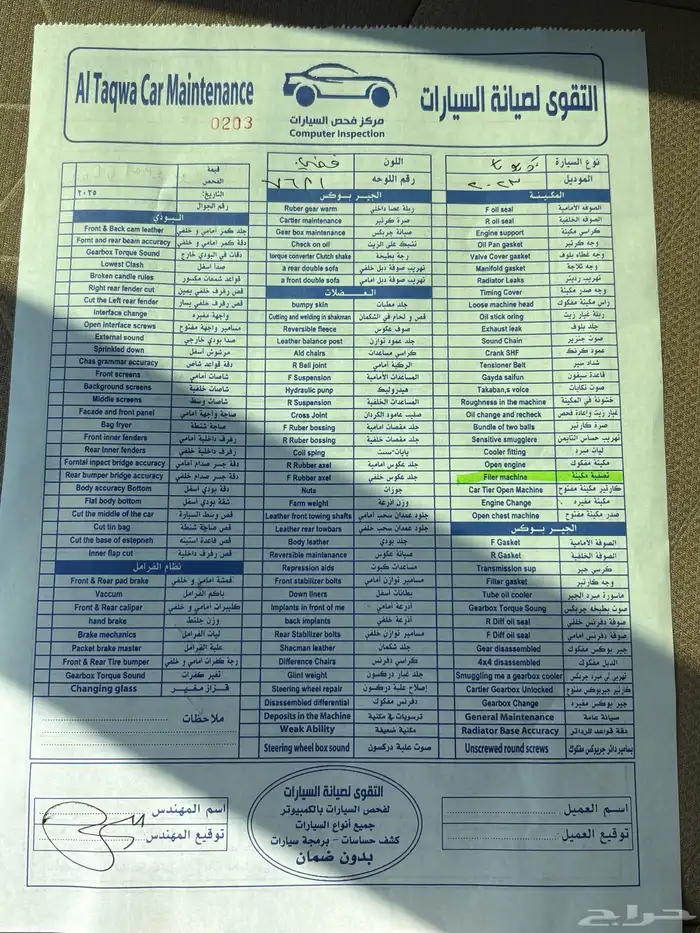 Al Taqwa Car Maintenance
0203
مركز فحص السيارات
Computer Inspection
التقوى لصيانة السيارات
نوع السيارة
الموديل ٢٠٢٣
اللون فضي
رقم اللوحه ٧٦٨١
قيمة الفحص
التاريخ: ٢٠٢٥
رقم الجوال
المكينة
F oil seal الصوفة الأمامية
R oil seal الصوفة الخلفية
Engine support كراسي مكينة
Oil Pan gasket وجه كرتير
Valve Cover gasket وجه غطاء بلوف
Manifold gasket وجه ثلاجة
Radiator Leaks تهريب رديتر
Timing Cover وجه صدر مكينة
Loose machine head راس مكينة مفكوك
Oil stick oring ربلة عيار زيت
Exhaust leak جلد بلوف
Sound Chain صوت جنزير
Crank SHF عمود كرنك
Tensioner Belt شداد سير
Gayda saifun قاعدة سيفون
Takaban,s voice صوت تكايات
Roughness in the machine خشونة في المكينة
Oil change and recheck غيار زيت وإعادة فحص
Bundle of two balls صرة كارتير
Sensitive smugglere تهريب حساس التايمن
Cooler fitting ليات مبرد
Open engine مكينة مفكوك
Filer machine تصفية مكينة
Car Tier Open Machine كارتير مكينة مفتوح
Engine Change مكينة مغيره
Open chest machine صدر مكينة مفتوح
الجير بوكس
F Gasket الصوفة الامامية
R Gasket الصوفة الخلفية
Transmission sup كرسي جير
Filter gasket وجه كارتير
Tube oil cooler ماسورة مبرد الجير
Gearbox Torque Soung صوت بطيخه جربكس
R Diff oil seal صوفة دفرنس خلفي
F Diff oil seal صوفة دفرنس امامي
Gear disassembled جير بوكس مفكوك
4x4 disassembled الدبل مفكوك
Smuggling me a gearbox cooler تهريبي لي مبرد جربكس
Cartier Gearbox Unlocked كارتير جيربوكس مفتوح
Gearbox Change جير بوكس مغيره
General Maintenance صيانة عامة
Radiator Base Accuracy دقة قواعد للرداتر
Unscrewed round screws مسامير دائر جربوكس مفكوك
الجير بوكس
Ruber gear warm ربلة عصا داخلي
Cartier maintenance صرة كرتير
Gear box maintenance صيانة جربكس
Check on oil تشيك على الزيت
torque converter Clutch shake رجة بطيخة
a rear double sofa تهريب صوفة دبل خلفي
a front double sofa تهريب صوفة دبل أمامي
العضلات
bumpy skin جلد مطبات
Cutting and welding in shakman قص و لحام في الشكمان
Reversible fleece صوف عكوس
Leather balance post جلد عمود توازن
Ald chairs كراسي مساعدات
R Bell joint الركبة أمامي
F Suspension المساعدات الأمامية
Hydraulic punp هيدروليك
R Suspension المساعدات الخلفية
Cross Joint صليب عامود الكردان
F Ruber bossing جلد مقصات امامية
R Ruber bossing جلد مقصات خلفية
Coil sping يايات-سست
R Rubber axel جلد عكوس أمامية
F Rubber axel جلد عكوس خلفي
Nuts جوزات
Farm weight وزن أذرعة
Leather front towing shafts جلود عمدان سحب أمامي
Leather rear towbars جلود عمدان سحب خلفي
Body leather جلد بودي
Reversible maintenance صيانة عكوس
Repression aids مساعدات كبوت
Front stabilizer bolts مسامير توازن أمامي
Down liners بطانات أسفل
Implants in front of me أذرعة أمامي
back implants أذرعة خلفي
Rear Stabilizer bolts مسامير توازن خلفي
Shacman leather جلد شكمان
Difference Chairs كراسي دفرنس
Glint weight جلد غبار دركسون
Steering wheel repair إصلاح علبة دركسون
Disassembled differential دفرنس مفكوك
Deposits in the Machine ترسوبات في مكينية
Weak Ability مكنية ضعيفة
Steering wheel box sound صوت علبة دركسون
البودي
Front & Back cam leather جلد كمر أمامي و خلفي
Fornt and rear beam accuracy دقة كمر أمامي و خلفي
Gearbox Torque Sound دقات في البودي خارج
Lowest Clash صدا أسفل
Broken candle rules قواعد شمعات مكسور
Right rear fender cut قص رفرف خلفي يمين
Cut the Left rear fender قص رفرف خلفي يسار
Interface change واجهة مغيره
Open interface screws مسامير واجهة مفتوح
External sound صدا بودي خارجي
Sprinkled down مرشوش أسفل
Chas grammar accuracy دقة قواعد شاص
Front screens شاصات أمامي
Background screens شاصات خلفية
Middle screens شاصات وسط
Facade and front panel صاجة واجهة أمامي
Bag fryer صاجة شنطة
Front inner fenders رفرف داخلية أمامي
Rear Inner fenders رفرف داخلية خلفي
Forntal inpact bridge accuracy دقة جسر صدام أمامي
Rear bumper bridge accuracy دقة جسر صدام خلفي
Body accuracy Bottom دقة بودي أسفل
Flat body bottom شقة بودي أسفل
Cut the middle of the car قص وسط السيارة
Cut tin bag قص صاجة شنطة
Cut the base of estepneh قص قاعدة استبنه
Inner flap cut قص رفرف داخلية
نظام الفرامل
Front & Rear pad brake قمشة أمامي و خلفي
Vaccum باكم الفرامل
Front & Rear caliper كليبرات أمامي و خلفي
hand brake وزن جلنط
Brake mechanics ليات الفرامل
Packet brake master علبة الفرامل
Front & Rear Tire bumper رجة كفرات أمامي و خلفي
Gearbox Torque Sound تغير كفرات
Changing glass قزاز مغير
ملاحظات
اسم المهندس
توقيع المهندس
التقوى لصيانة السيارات
لفحص السيارات بالكمبيوتر
جميع أنواع السيارات
كشف حساسات - برمجة سيارات
بدون ضمان
اسم العميل
توقيع العميل
حراج